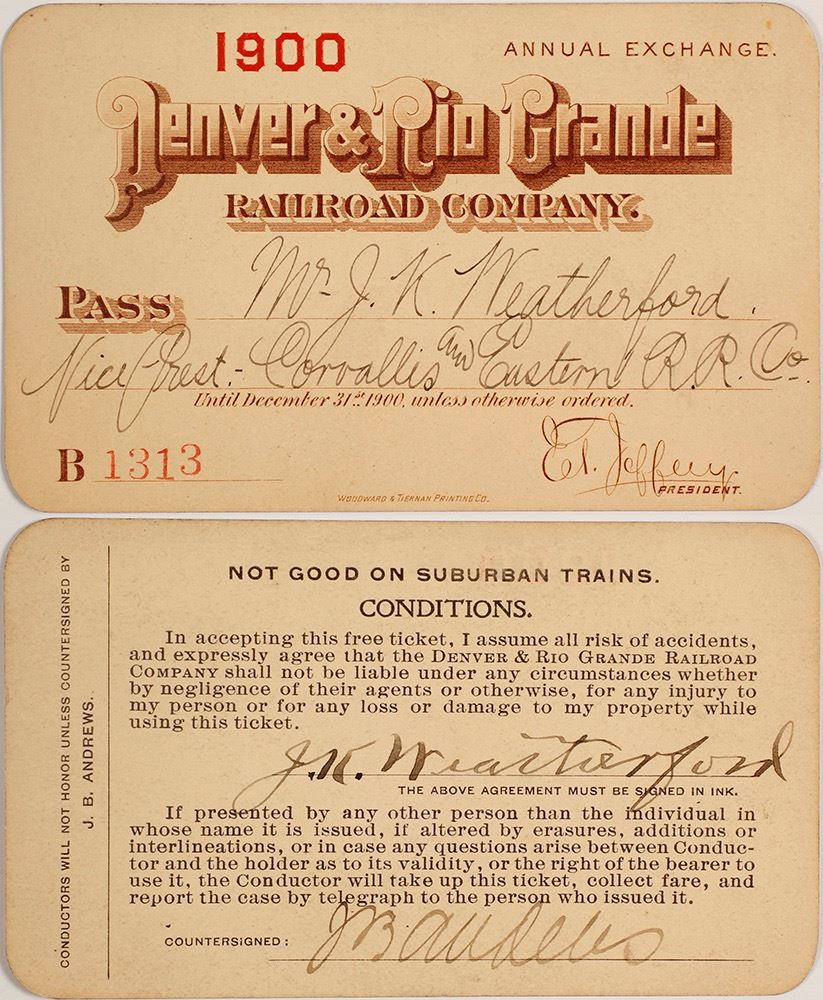 1900
ANNUAL EXCHANGE.
Denver & Rio Grande
RAILROAD COMPANY.
PASS Mr. J. K. Weatherford.
Vice Prest.- Corvallis and Eastern R.R. Co.
Until December 31st 1900, unless otherwise ordered.
B 1313
E.T. Jeffery
PRESIDENT.
WOODWARD & TIERNAN PRINTING CO.
CONDUCTORS WILL NOT HONOR UNLESS COUNTERSIGNED BY
J. B. ANDREWS.
NOT GOOD ON SUBURBAN TRAINS.
CONDITIONS.
In accepting this free ticket, I assume all risk of accidents,
and expressly agree that the DENVER & RIO GRANDE RAILROAD
COMPANY shall not be liable under any circumstances whether
by negligence of their agents or otherwise, for any injury to
my person or for any loss or damage to my property while
using this ticket.
J. K. Weatherford
THE ABOVE AGREEMENT MUST BE SIGNED IN INK.
If presented by any other person than the individual in
whose name it is issued, if altered by erasures, additions or
interlineations, or in case any questions arise between Conduc-
tor and the holder as to its validity, or the right of the bearer to
use it, the Conductor will take up this ticket, collect fare, and
report the case by telegraph to the person who issued it.
COUNTERSIGNED: J B Andrews